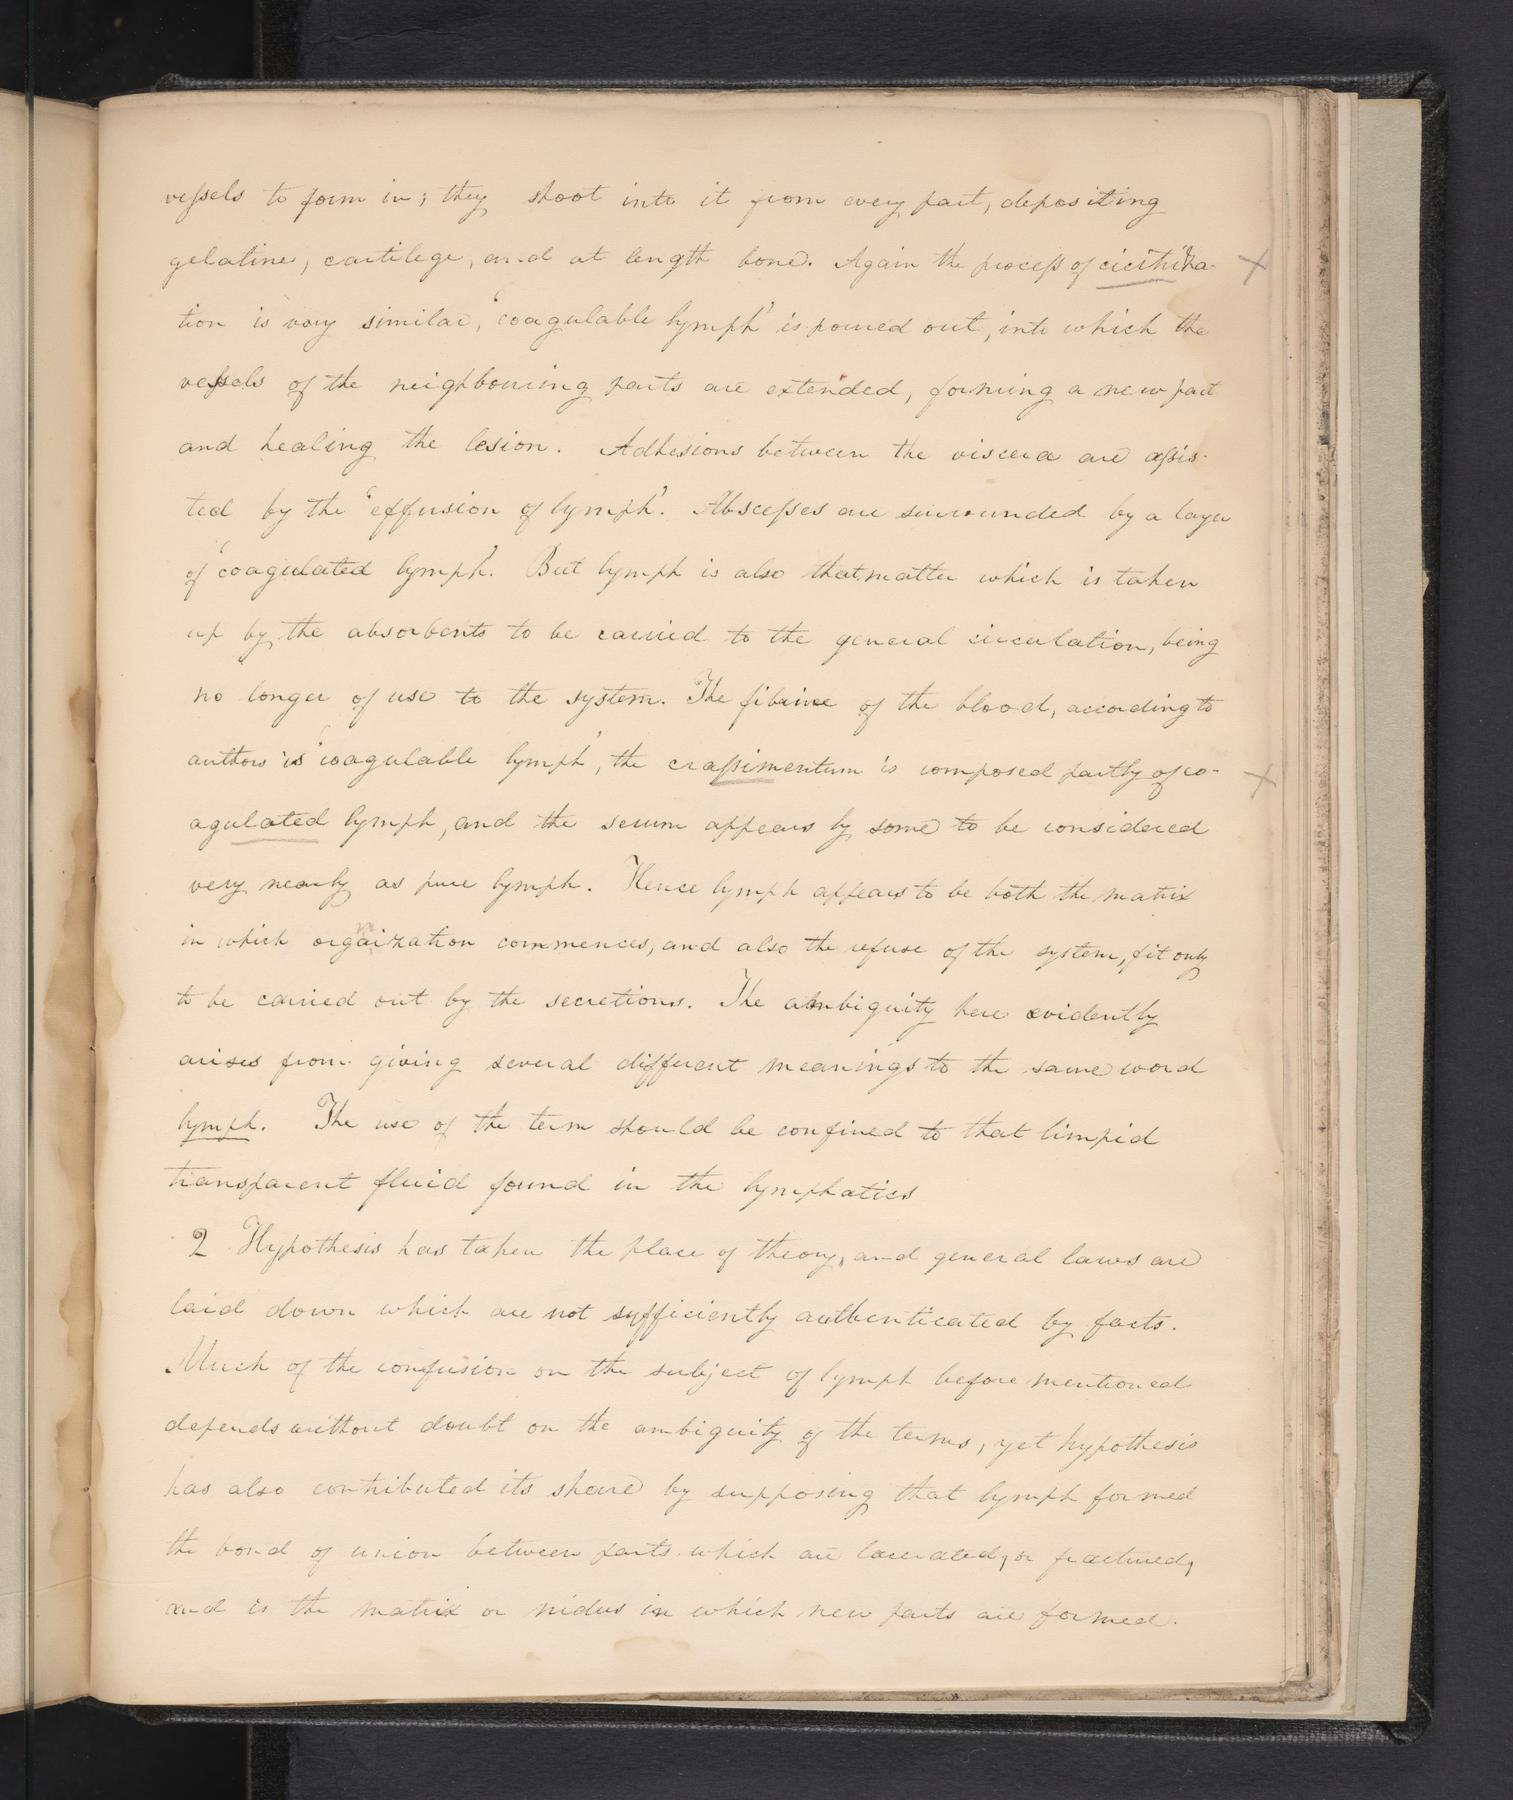 vessels to form in; they shoot into it from every part, depositing
gelatine, cartilege, and at length bone. Again the process of cicitriza- ×
tion is very similar, 'coagulable lymph' is poured out, into which the
vessels of the neighbouring parts are extended, forming a new part
and healing the lesion. Adhesions between the viscera are assis-
ted by the 'effusion of lymph'. Abscesses are surrounded by a layer
of 'coagulated lymph'. But lymph is also that matter which is taken
up by the absorbents to be carried to the general circulation, being
no longer of use to the system. The fibrine of the blood, according to
authors is 'coagulable lymph', the crassimentum is composed partly of co- ×
agulated lymph, and the serum appears by some to be considered
very nearly as pure lymph. Hence lymph appears to be both the matrix
in which orgaization commences, and also the refuse of the system, fit only
to be carried out by the secretions. The ambiguity here evidently
arises from giving several different meanings to the same word
lymph. The use of the term should be confined to that limpid
transparent fluid found in the lymphatics
2 Hypothesis has taken the place of theory, and general laws are
laid down which are not sufficiently authenticated by facts.
Much of the confusion on the subject of lymph before mentioned
depends without doubt on the ambiguity of the terms, yet hypothesis
has also contributed its share by supposing that lymph formed
the bond of union between parts which are lacerated, or fractured,
and is the matrix or nidus in which new parts are formed.